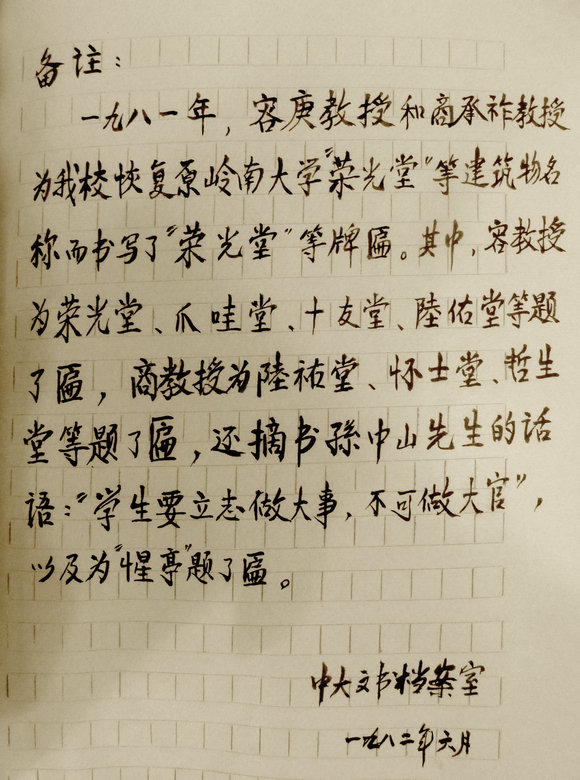 备注：
一九八一年，容庚教授和商承祚教授
为我校恢复原岭南大学“荣光堂”等建筑物名
称而书写了“荣光堂”等牌匾。其中，容教授
为荣光堂、爪哇堂、十友堂、陸佑堂等题
了匾，商教授为陸祐堂、怀士堂、哲生
堂等题了匾，还摘书孫中山先生的话
语：“学生要立志做大事，不可做大官”，
以及为“惺亭”题了匾。
中大文书档案室
一九八二年六月